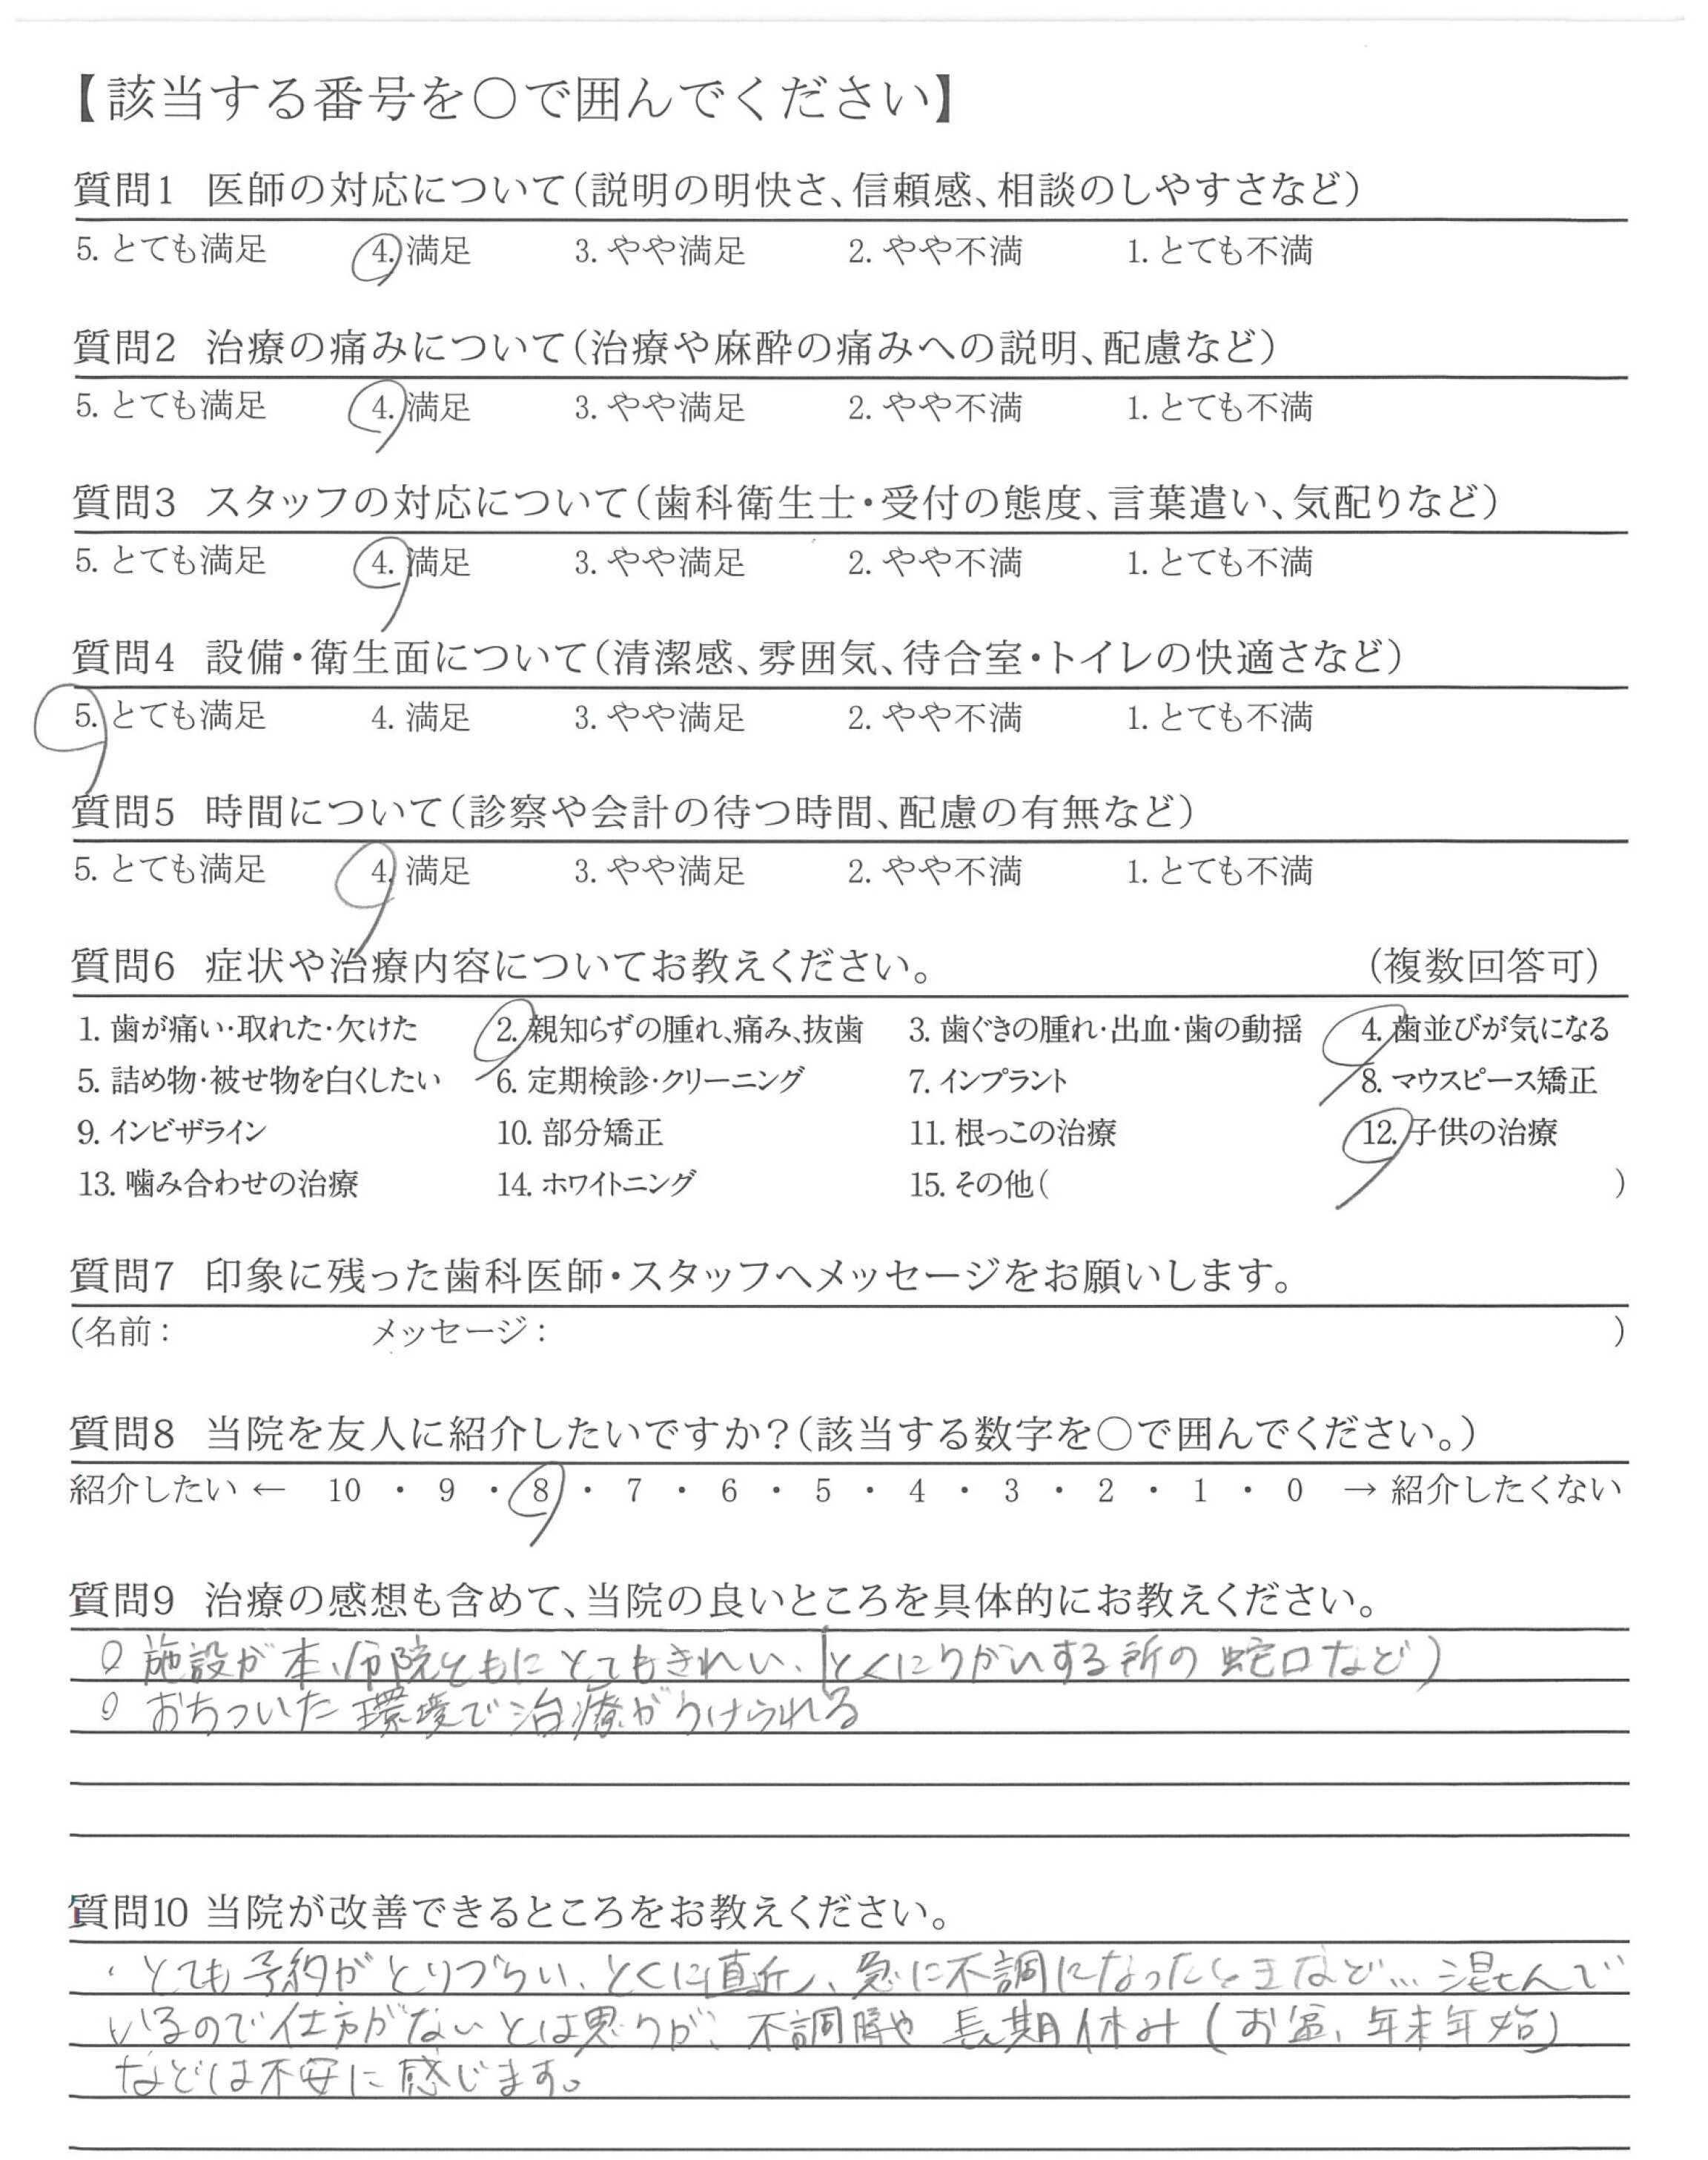 【該当する番号を○で囲んでください】
質問1 医師の対応について(説明の明快さ、信頼感、相談のしやすさなど)
5. とても満足 4. 満足 3. やや満足 2. やや不満 1. とても不満
質問2 治療の痛みについて(治療や麻酔の痛みへの説明、配慮など)
5. とても満足 4. 満足 3. やや満足 2. やや不満 1. とても不満
質問3 スタッフの対応について(歯科衛生士・受付の態度、言葉遣い、気配りなど)
5. とても満足 4. 満足 3. やや満足 2. やや不満 1. とても不満
質問4 設備・衛生面について(清潔感、雰囲気、待合室・トイレの快適さなど)
5. とても満足 4. 満足 3. やや満足 2. やや不満 1. とても不満
質問5 時間について(診察や会計の待つ時間、配慮の有無など)
5. とても満足 4. 満足 3. やや満足 2. やや不満 1. とても不満
質問6 症状や治療内容についてお教えください。 (複数回答可)
1. 歯が痛い・取れた・欠けた 2. 親知らずの腫れ、痛み、抜歯 3. 歯ぐきの腫れ・出血・歯の動揺 4. 歯並びが気になる
5. 詰め物・被せ物を白くしたい 6. 定期検診・クリーニング 7. インプラント 8. マウスピース矯正
9. インビザライン 10. 部分矯正 11. 根っこの治療 12. 子供の治療
13. 噛み合わせの治療 14. ホワイトニング 15. その他( )
質問7 印象に残った歯科医師・スタッフへメッセージをお願いします。
(名前: メッセージ: )
質問8 当院を友人に紹介したいですか?(該当する数字を○で囲んでください。)
紹介したい ← 10 ・ 9 ・ 8 ・ 7 ・ 6 ・ 5 ・ 4 ・ 3 ・ 2 ・ 1 ・ 0 → 紹介したくない
質問9 治療の感想も含めて、当院の良いところを具体的にお教えください。
○ 施設が本、分院ともにとてもきれい、(とくにうがいする所の蛇口など)
○ おちついた環境で治療がうけられる
質問10 当院が改善できるところをお教えください。
・とても予約がとりづらい、とくに直近、急に不調になったときなど… 混んで
いるので仕方がないとは思うが、不調時や長期休み(お盆、年末年始)
などは不安に感じます。